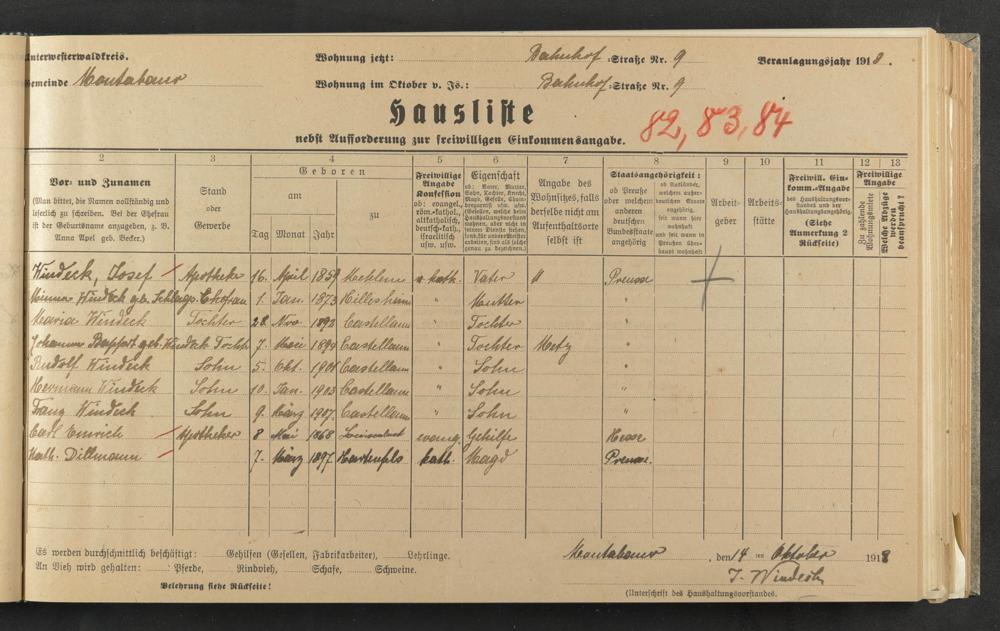 Unterwesterwaldkreis. Wohnung jetzt: Bahnhof-Straße Nr. 9 Veranlagungsjahr 1918.
Gemeinde Montabaur Wohnung im Oktober v. Js.: Bahnhof-Straße Nr. 9
Hausliste
82, 83, 84
nebst Aufforderung zur freiwilligen Einkommensangabe.
2 3 4 5 6 7 8 9 10 11 12 13
Vor- und Zunamen
(Man bittet, die Namen vollständig und leserlich zu schreiben. Bei der Ehefrau ist der Geburtsname anzugeben, z. B. Anna Apel geb. Becker.)
Stand oder Gewerbe
Geboren
am
Tag Monat Jahr
zu
Freiwillige Angabe Konfession
ob: evangel., röm.-kathol., altkatholisch, deutsch-kath., israelitisch usw. usw.
Eigenschaft
Angabe des Wohnsitzes, falls derselbe nicht am Aufenthaltsorte selbst ist
Staatsangehörigkeit:
ob Preuße oder welchem anderen deutschen Bundesstaate angehörig
ob Ausländer, welchem außerdeutschen Staate angehörig, seit wann hier wohnhaft und seit wann in Preußen überhaupt wohnhaft
Arbeitgeber
Arbeitsstätte
Freiwill. Einkomm.-Angabe
des Haushaltungsvorstandes und der Haushaltungsangehörig.
(Siehe Anmerkung 2 Rückseite)
Freiwillige Angabe
Zu zahlende Wohnungsmiete
Welche Abzüge werden beansprucht?
Windeck, Josef Apotheker 16. April 1859 kath. Vater " Preusse
Windeck geb. Ehefrau 1. Jan. 1873 Hillesheim " Mutter "
Maria Windeck Tochter 28. Nov 1892 Castellaun " Tochter "
Johanna geb. Windeck Tochter 7. Castellaun " Tochter Metz "
Rudolf Windeck Sohn 5. Okt. 1901 Castellaun " Sohn "
Hermann Windeck Sohn 10. Jan. 1903 Castellaun " Sohn "
Franz Windeck Sohn 9. März 1907 Castellaun " Sohn "
Carl Emrich Apotheker 8 Mai 1868 evang. Gehilfe Hesse
Kath. Dillmann 7. März 1897 Hartenfels kath. Magd Preusse.
Es werden durchschnittlich beschäftigt: Gehilfen (Gesellen, Fabrikarbeiter), Lehrlinge. Montabaur, den 14 ten Oktober 1918
An Vieh wird gehalten: Pferde, Rindvieh, Schafe, Schweine. J. Windeck
Belehrung siehe Rückseite! (Unterschrift des Haushaltungsvorstandes.